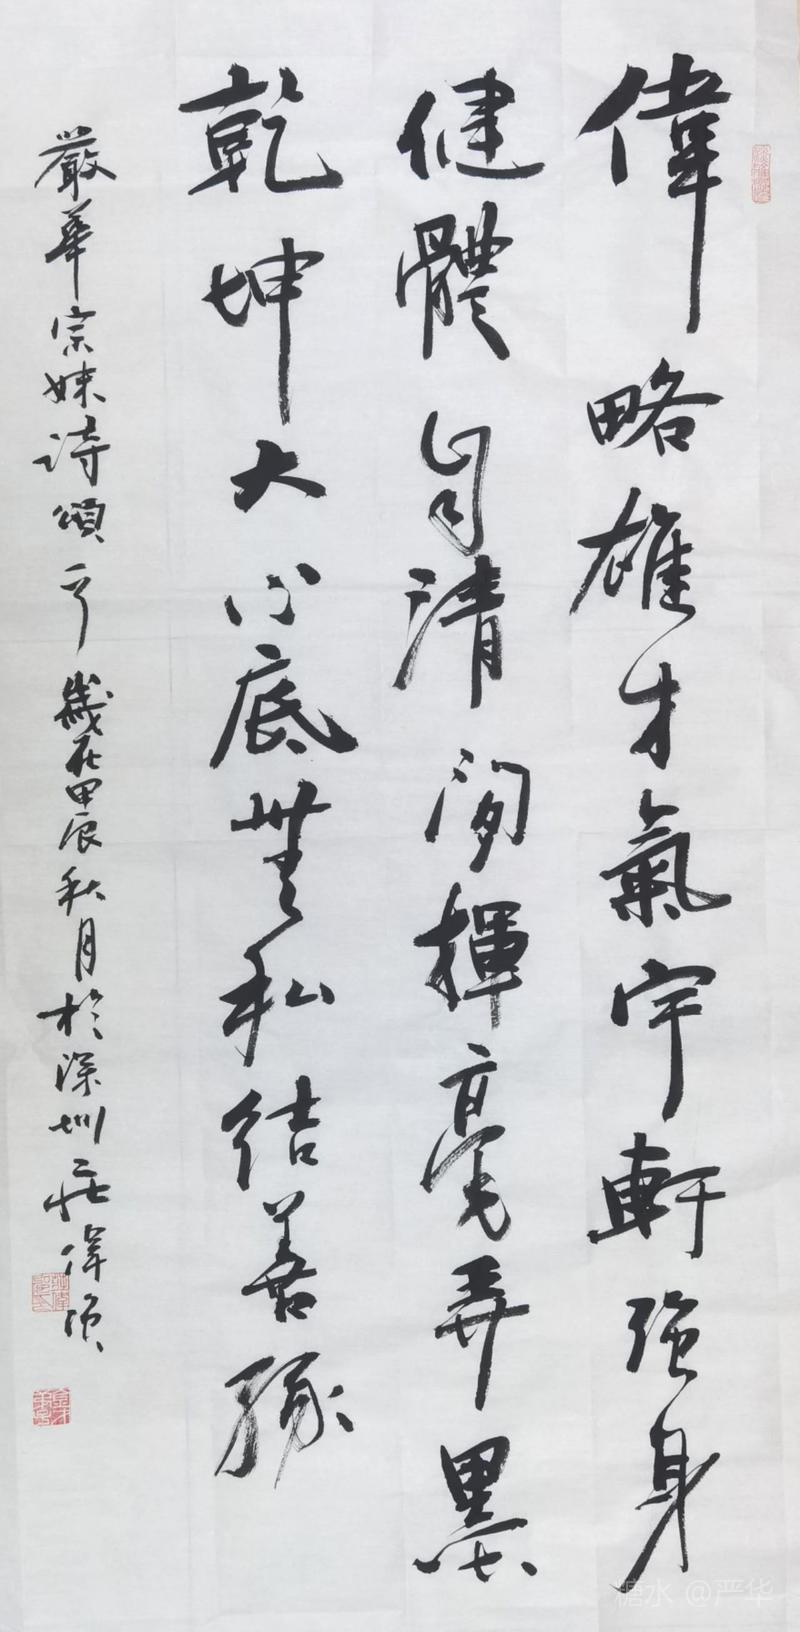 偉略雄才氣宇軒強身
健體自清閒揮毫弄墨
乾坤大心底無私結善緣
嚴華宗妹詩頌之歲在甲辰秋月於深圳莊偉須
糖水 @严华